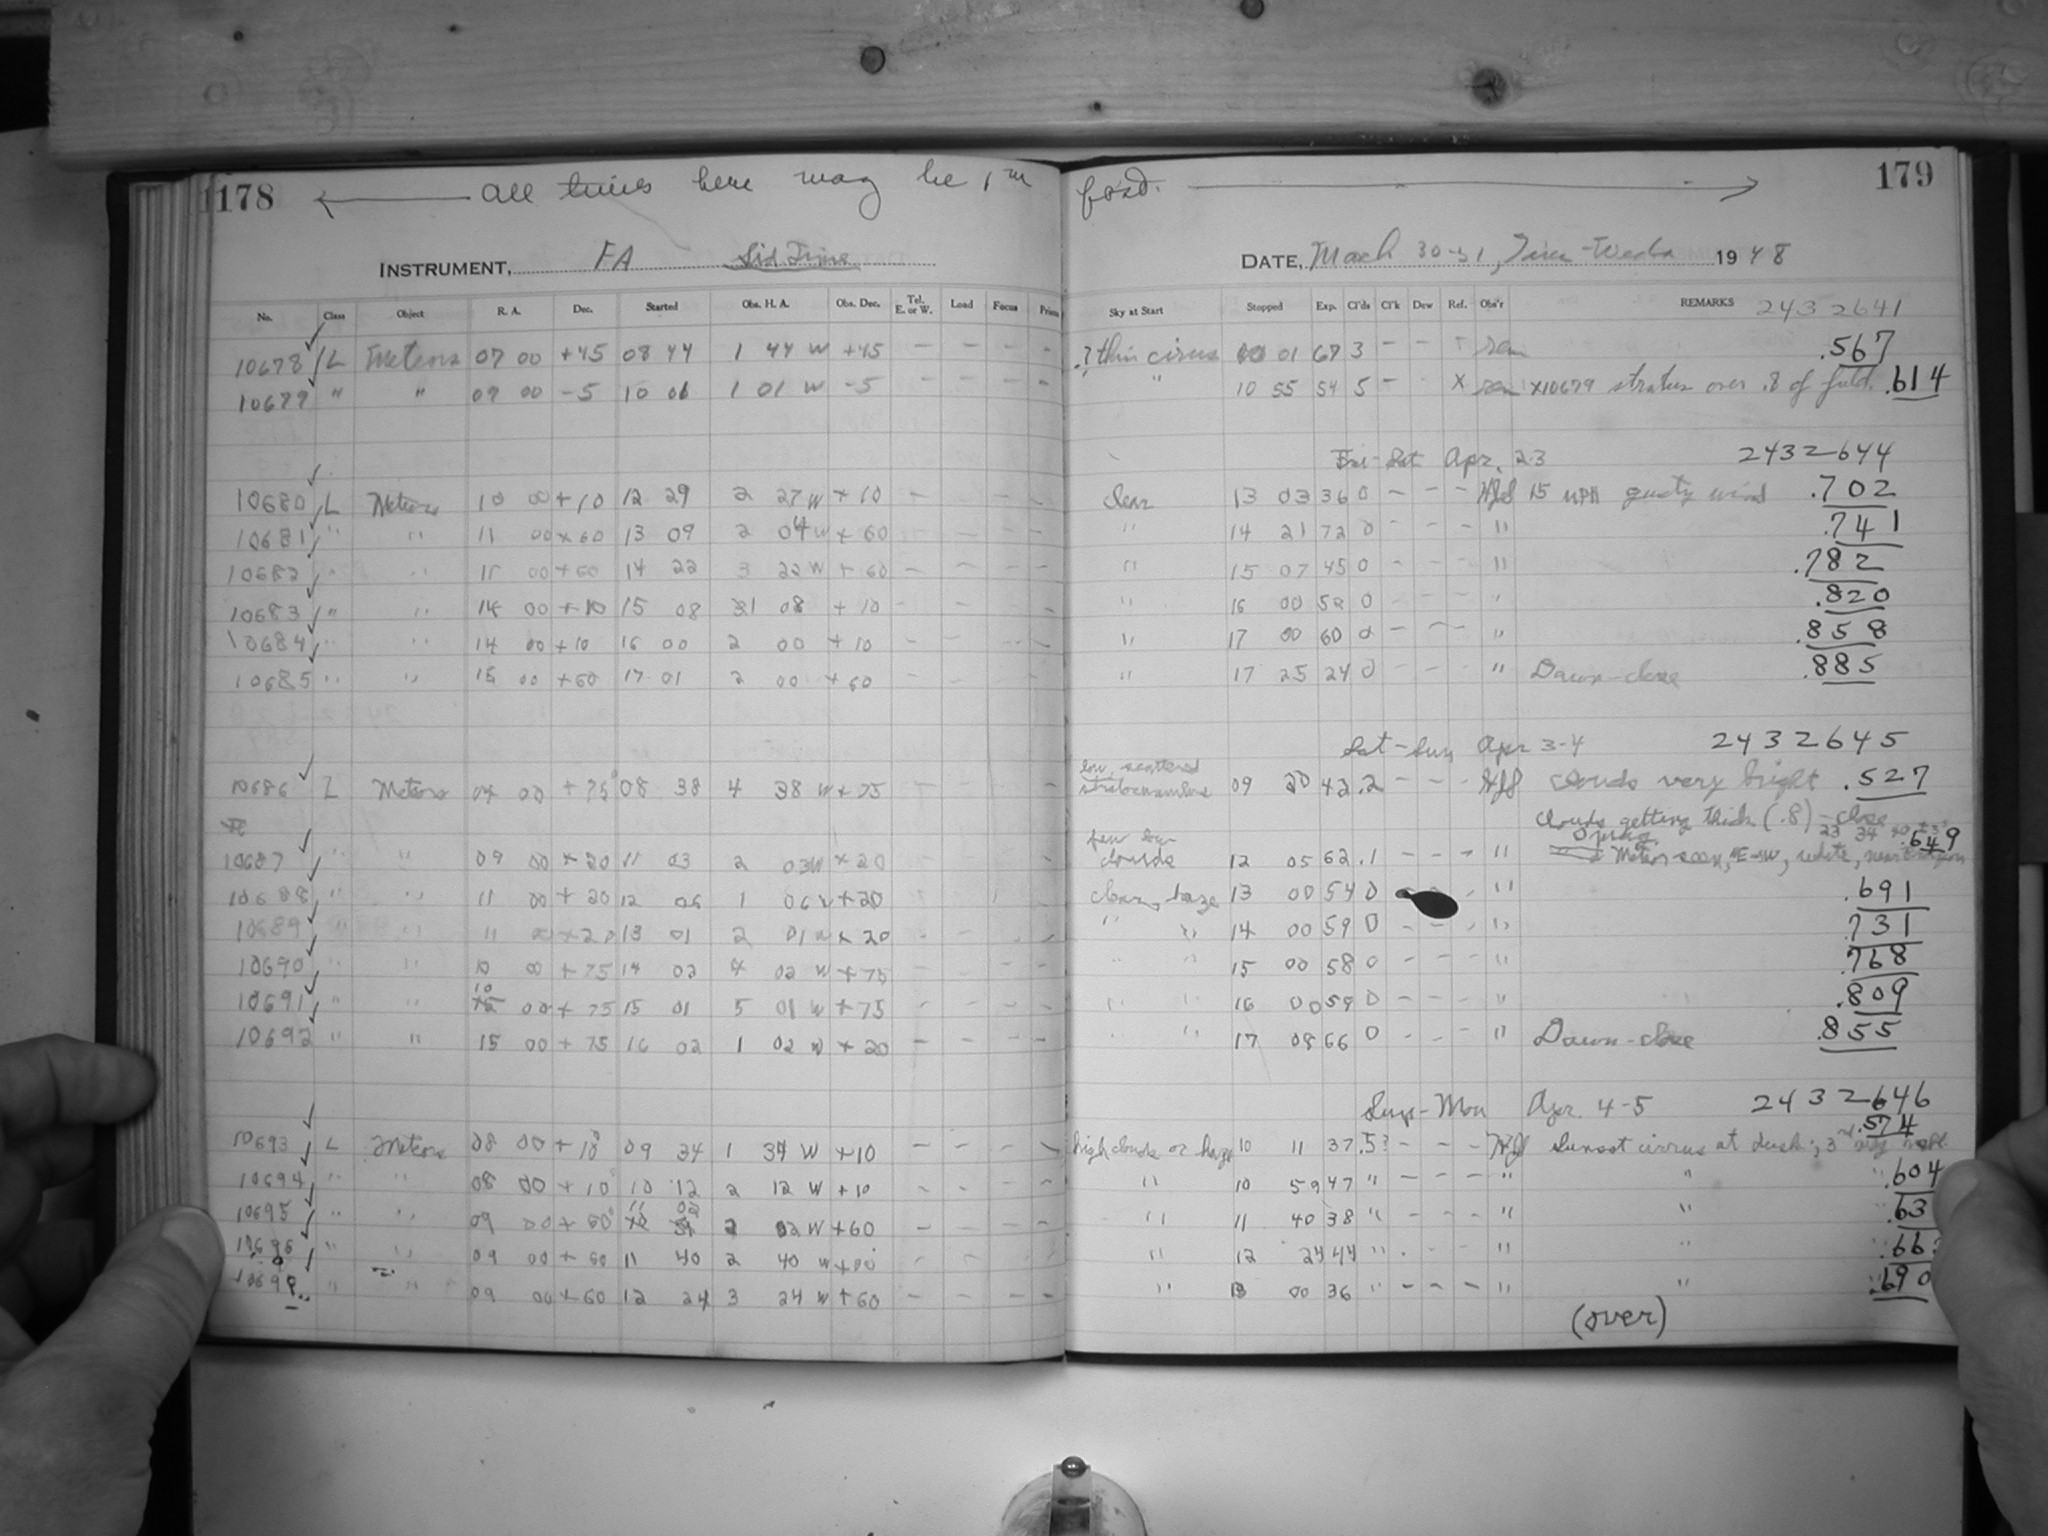 178 ← All times here may be 1 m fast. → 179
INSTRUMENT, FA Sid Time DATE, March 30-31, Tues-Weds 1948
No. Class Object R. A. Dec. Started Obs. H. A. Obs. Dec. Tel. E. or W. Load Focus Prism Sky at Start Stopped Exp. Cl'ds Cl'k Dew Ref. Obs'r REMARKS 2432641
10678 L Meteors 07 00 +45 08 44 1 44 W +45 - - - - .? thin cirrus 01 67 3 - - .567
10679 " " 09 00 -5 10 01 1 01 W -5 - - - - " 10 55 54 5 - X X10679 stratus over .8 of field. .614
Fri-Sat Apr. 2-3 2432644
10680 L Meteors 10 00 +10 12 29 2 27 W +10 - - - - clear 13 03 36 0 - - - 15 MPH gusty wind .702
10681 " " 11 00 +60 13 09 2 04 W +60 - - - - " 14 21 72 0 - - - " .741
10682 " " 11 00 +60 14 22 3 22 W +60 - - - - " 15 07 45 0 - - - " .782
10683 " " 14 00 +10 15 08 1 08 +10 - - - - " 16 00 52 0 - - - " .820
10684 " " 14 00 +10 16 00 2 00 +10 - - - - " 17 00 60 0 - - - " .858
10685 " " 15 00 +60 17 01 2 00 +60 - - - - " 17 25 24 0 - - - " Dawn-close .885
Sat-Sun Apr 3-4 2432645
10686 L Meteors 04 00 +75° 08 38 4 38 W +75 - - - - low, scattered stratocumulus 09 20 42 .2 - - - clouds very bright .527
clouds getting thick (.8) - close
10687 " " 09 00 +20 11 03 2 03 W +20 few low clouds 12 05 62 .1 - - - " Meteor seen, E-W, white, near .649
10688 " " 11 00 +20 12 06 1 06 W +20 clear, haze 13 00 54 0 - " .691
10689 " " 11 00 +20 13 01 2 01 W +20 - - - - " " 14 00 59 0 - - - " .731
10690 " " 10 00 +75 14 02 4 02 W +75 - - - - " " 15 00 58 0 - - - " .768
10691 " " 10 00 +75 15 01 5 01 W +75 - - - - " " 16 00 59 0 - - - " .809
10692 " " 15 00 +75 16 02 1 02 W +20 - - - - " " 17 08 66 0 - - - " Dawn-close .855
Sun-Mon Apr. 4-5 2432646
10693 L Meteors 08 00 +10° 09 34 1 34 W +10 - - - - high clouds or haze 10 11 37 .5? - - - Sunset cirrus at dusk; 3rd .574
10694 " " 08 00 +10° 10 12 2 12 W +10 - - - - " 10 59 47 " - - - " " .604
10695 " " 09 00 +60° 11 02 2 02 W +60 - - - - " 11 40 38 " - - - " " .63
10696 " " 09 00 +60 11 40 2 40 W +60 - - - - " 12 24 44 " - - - " " .66
" " 09 00 +60 12 24 3 24 W +60 - - - - " 13 00 36 " - - - " " .690
(over)